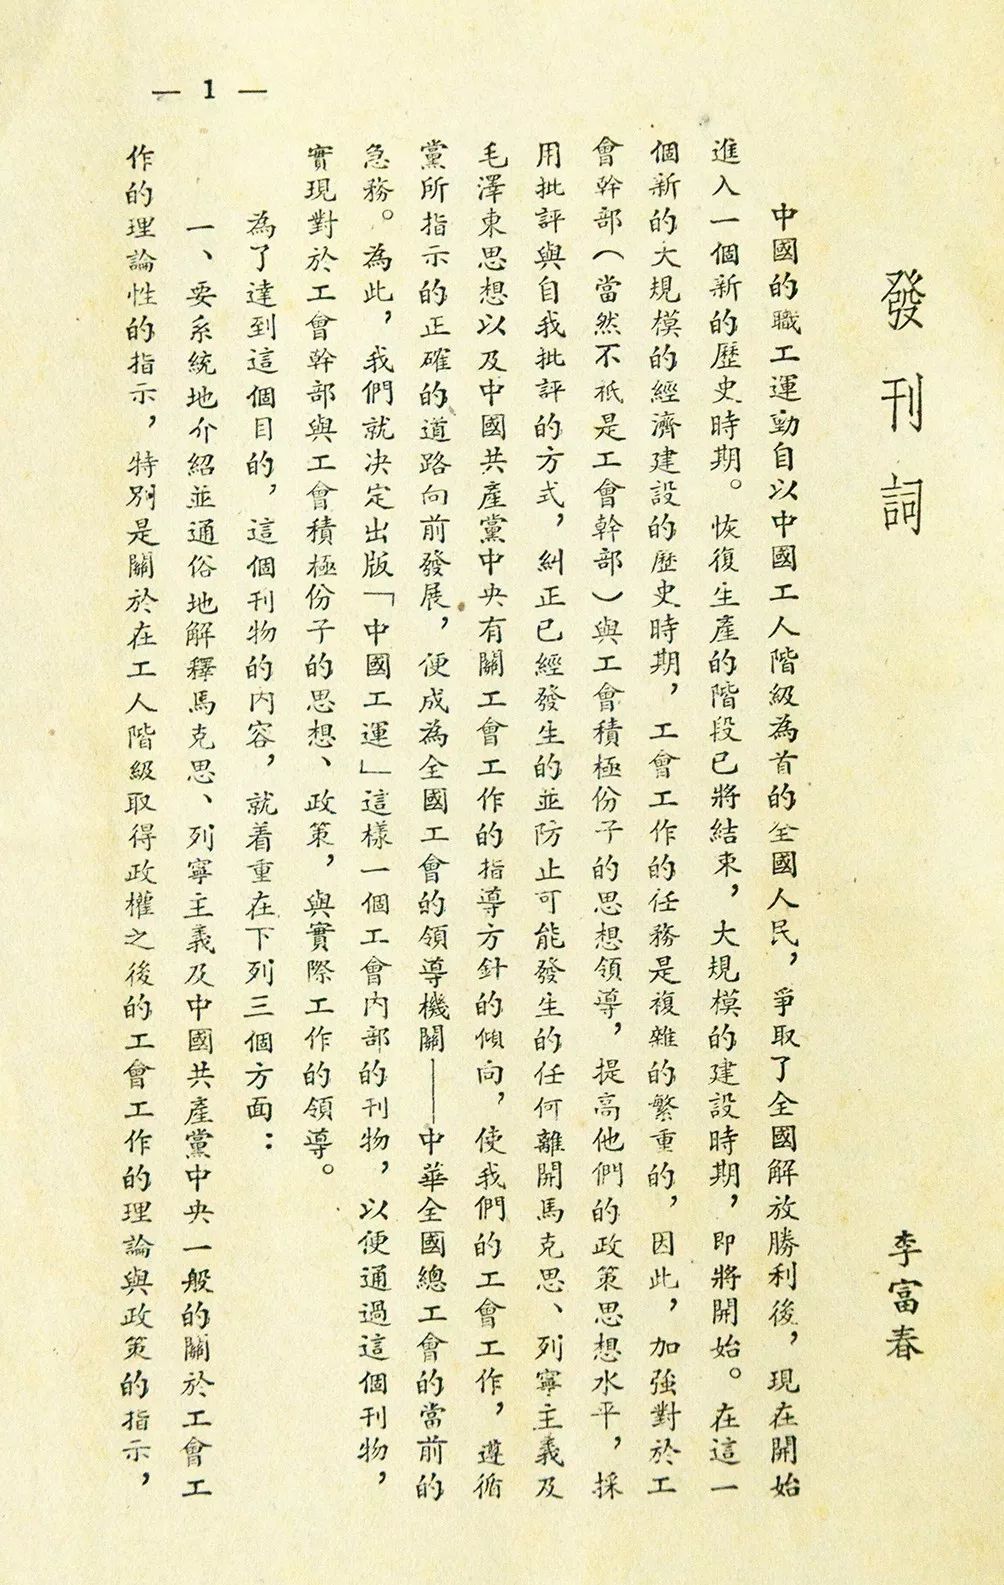 — 1 —
發刊詞
李富春
中國的職工運動自以中國工人階級為首的全國人民，爭取了全國解放勝利後，現在開始
進入一個新的歷史時期。恢復生產的階段已將結束，大規模的建設時期，即將開始。在這一
個新的大規模的經濟建設的歷史時期，工會工作的任務是複雜的繁重的，因此，加強對於工
會幹部（當然不祇是工會幹部）與工會積極份子的思想領導，提高他們的政策思想水平，採
用批評與自我批評的方式，糾正已經發生的並防止可能發生的任何離開馬克思、列寧主義及
毛澤東思想以及中國共產黨中央有關工會工作的指導方針的傾向，使我們的工會工作，遵循
黨所指示的正確的道路向前發展，便成為全國工會的領導機關——中華全國總工會的當前的
急務。為此，我們就決定出版「中國工運」這樣一個工會內部的刊物，以便通過這個刊物，
實現對於工會幹部與工會積極份子的思想、政策，與實際工作的領導。
為了達到這個目的，這個刊物的內容，就着重在下列三個方面：
一、要系統地介紹並通俗地解釋馬克思、列寧主義及中國共產黨中央一般的關於工會工
作的理論性的指示，特別是關於在工人階級取得政權之後的工會工作的理論與政策的指示，